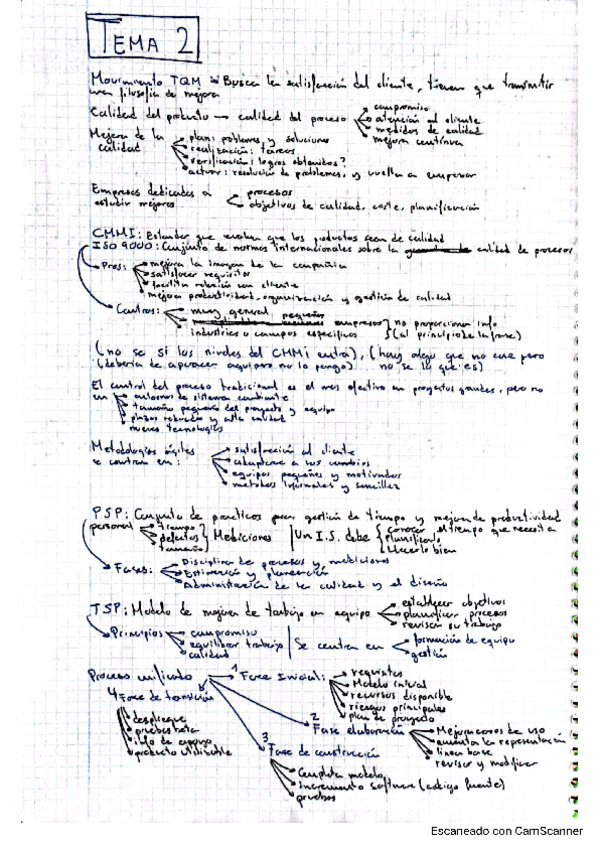 TEMA 2
Movimiento TQM → Busca la satisfacción del cliente, tienen que transmitir
una filosofía de mejora
Calidad del producto → calidad del proceso
compromiso
atención al cliente
medidas de calidad
mejora continua
Mejora de la calidad
plan: problemas y soluciones
realización: tareas
verificación: logros obtenidos?
actuar: resolución de problemas, y vuelta a empezar
Empresas dedicadas a estudiar mejoras
procesos
objetivos de calidad, coste, planificación
CMMI: Estandar que evaluan que los productos sean de calidad
ISO 9000: Conjunto de normas internacionales sobre la calidad de procesos
Pros:
mejora la imagen de la compañía
satisfacer requisitos
facilita relación con cliente
mejora productividad, organización y gestión de calidad
Contras:
muy general
pequeñas empresas
industrias o campos especificos
no proporciona info
(al principio de la frase)
(no se si los niveles del CMMI entra), (hay algo que no cae pero
(debería de aparecer aquí pero no lo pongo) no se lo que es)
El control del proceso tradicional es el mas efectivo en proyectos grandes, pero no
en
entornos de sistema cambiante
tamaño pequeño del proyecto y equipo
plazos reducidos y alta calidad
nuevas tecnologías
Metodologías ágiles
se centran en:
satisfacción al cliente
adaptarse a los cambios
equipos pequeños y motivados
metodos informales y sencillez
PSP: Conjunto de practicas para gestión de tiempo y mejora de productividad
personal
tiempo
defectos
tamaño
Mediciones
Un I.S. debe
conocer el tiempo que necesita
planificarlo
hacerlo bien
Fases:
Disciplina de procesos y mediciones
Estimación y planeación
Administración de la calidad y el diseño
TSP: Modelo de mejora de trabajo en equipo
establecer objetivos
planificar procesos
revisar su trabajo
Principios
compromiso
equilibrar trabajo
calidad
Se centra en
formación de equipo
gestión
Proceso unificado
1 Fase Inicial:
requisitos
Modelo inicial
recursos disponible
riesgos principales
plan de proyecto
4 Fase de transición
despliegue
pruebas beta
info de apoyo
producto utilizable
2
Fase elaboración
Mejora casos de uso
aumenta la representación
linea base
revisar y modificar
3
Fase de construcción
Completa modelo
Incremento software (código fuente)
pruebas
Escaneado con CamScanner